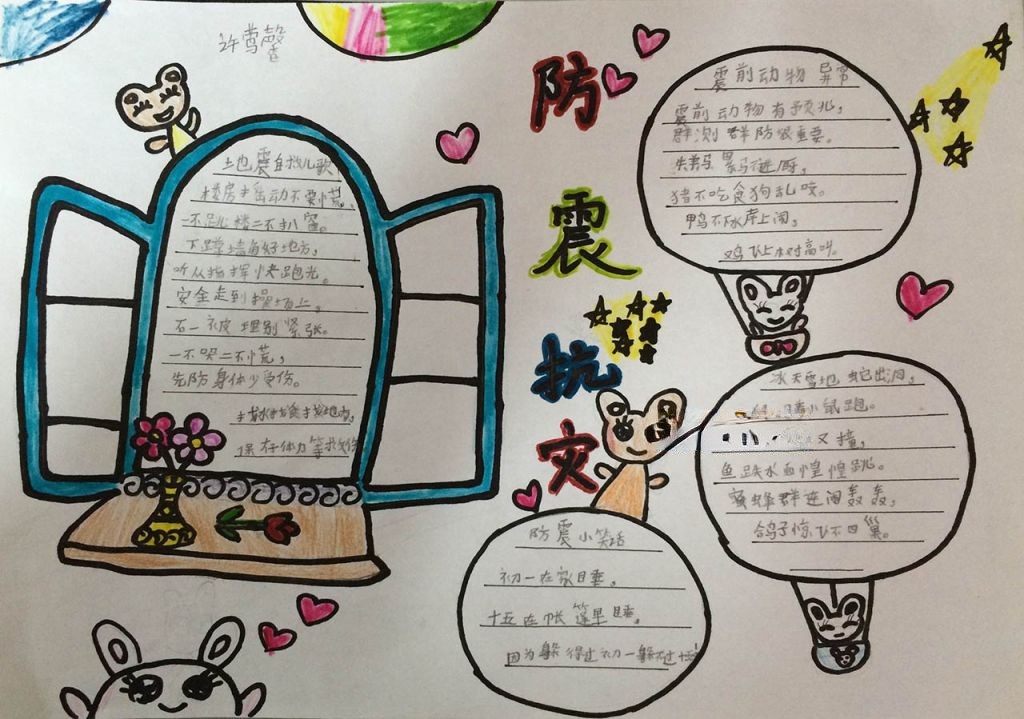 许莺馨
防震抗灾
地震自救儿歌
楼房摇动不要慌,
一不跳楼二不扒窗。
下蹲墙角好地方,
听从指挥快跑光。
安全走到操场上。
万一被埋别紧张。
一不哭二不慌,
先防身体少受伤。
保存体力等救
震前动物异常
震前动物有预兆,
群测群防很重要。
猪不吃食狗乱咬。
鸭不下水岸上闹,
鸡飞上树对高叫。
冰天雪地蛇出洞,
小鼠跑。
又撞,
鱼跃水面惶惶跳。
蜜蜂群迁闹轰轰,
鸽子惊飞不回巢。
防震小笑话
初一在家睡。
十五在帐篷里睡。
因为躲得过初一躲不过十五!